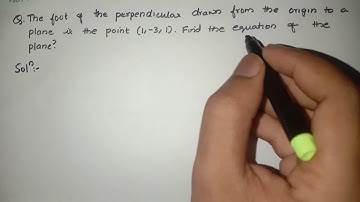 Q. The foot of the perpendicular drawn from the origin to a
plane is the point (1,-3,1). Find the equation of the
plane?
Solⁿ:-